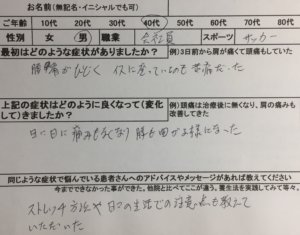 お名前(無記名・イニシャルでも可)
ご年齢 10代 20代 30代 40代 50代 60代 70代
性別 女 男 職業 会社員 スポーツ サッカー
最初はどのような症状がありましたか? 例)3日前から肩が痛くて頭痛もしていた
腰痛がひどく イスに座っているのも苦痛だった
上記の症状はどのように良くなって(変化
して)きましたか? 例)頭痛は治療後に無くなり、肩の痛みも
改善してきた
日に日に痛みもなくなり 腰も曲がる様になった
同じような症状で悩んでいる患者さんへのアドバイスやメッセージがあれば教えてください
今までできなかった事ができた。他院と比べてここが違う。養生法を実践してみて等々。
ストレッチ方法や日々の生活での注意点も教えて
いただいた